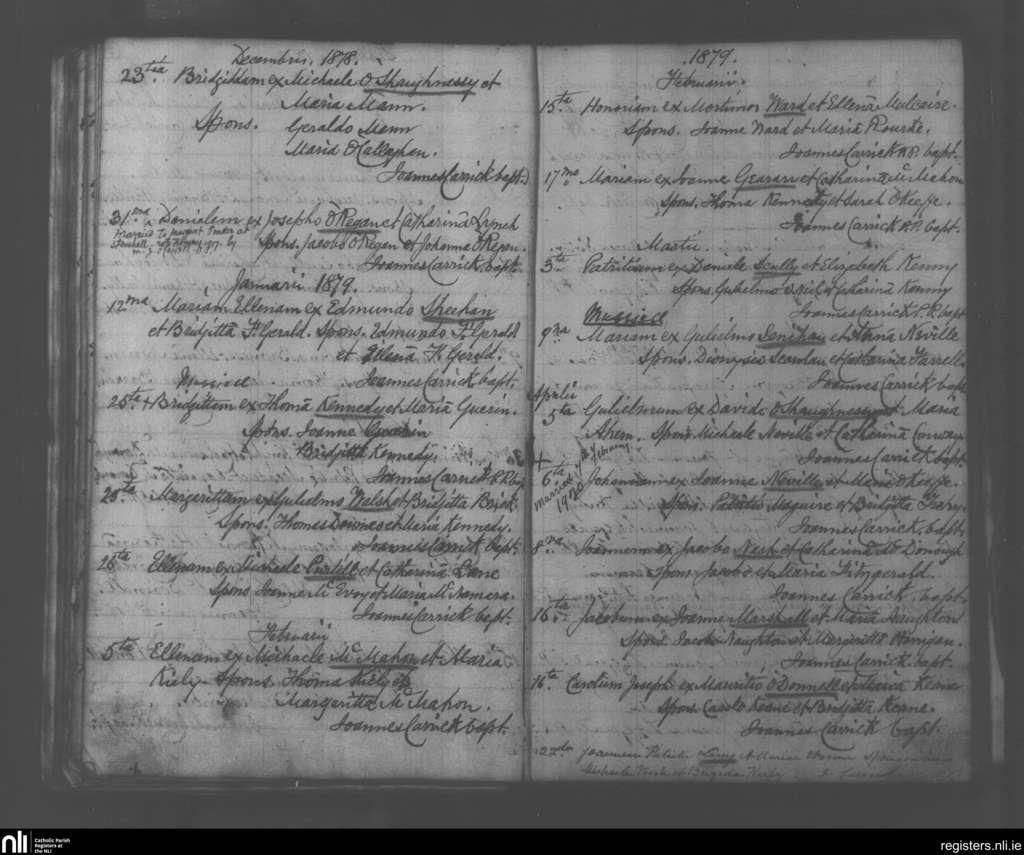 Decembris. 1878.
23tia Bridgittam ex Michaele O'Shaughnessy et
Maria Mann.
Spons. Geraldo Mann
Maria O'Callaghan.
Joannes Carrick bapt.
31ma Danielem ex Josepho O'Regan et Catharinâ Lynch
Married to
Spons. Jacobo O'Regan et Johanna O'Regan.
Joannes Carrick, bapt.
Januarii 1879.
12ma Mariam Ellenam ex Edmundo Sheehan
et Bridgittâ FGerald. Spons. Edmundo FGerald
et Ellenâ FGerald.
Joannes Carrick, bapt.
Married
25ta + Bridgittam ex Thomâ Kennedy et Mariâ Guerin.
Spons. Joanne Guerin
Bridgitta Kennedy.
Joannes Carrick P.P.
25ta Margarittam ex Gulielmo Welsh et Bridgitta Brick.
Spons. Thomas et Maria Kennedy.
Joannes Carrick bapt.
26ta Ellenam ex Michaele Purtell et Catharinâ Lane
Spons Joanne McEvoy et Maria McNamara.
Joannes Carrick bapt.
Februarii
5ta Ellenam ex Michaele McMahon et Maria
Kiely Spons Thoma Kiely et
Margaritta McMahon.
Joannes Carrick bapt.
1879.
Februarii.
15ta Honoriam ex Mortimor Ward et Ellenâ Mulcaire.
Spons. Joanne Ward et Mariâ Rourke.
Joannes Carrick P.P. bapt.
17ma Mariam ex Joanne Gearan et Catharinâ McMahon
Spons. Thoma Kennedy et Sarah O'Keefe.
Joannes Carrick P.P. bapt.
Martii.
3tia Patritium ex Daniele Scully et Elizabeth Kenny
Spons. Gulielmo O'Neil et Catharinâ Kenny
Joannes Carrick P.P. bapt
Married
9na Mariam ex Gulielmo et Annâ Neville
Spons. Dionysio Scanlan et Catharinâ Farrell
Joannes Carrick bapt
Aprilii
5ta Gulielmum ex Davide O'Shaughnessy et Maria
Ahern. Spons Michaele Neville et Catharinâ Conway
Joannes Carrick bapt
+
6ta Johannam ex Joanne Neville et Mariâ O'Keefe.
Married 7th February
1920
Spons. Patritio Maguire et Bridgitta
Joannes Carrick, bapt
8va Joannem ex Jacobo Nash et Catharinâ McDonough
Spons. Jacobo et Maria Fitzgerald.
Joannes Carrick, bapt.
16ta Jacobum ex Joanne Marshall et Mariâ Naughton
Spons. Jacobo Naughton et Margaritta Hannigan.
Joannes Carrick. bapt.
16ta Carolum Joseph ex Mauritio O'Donnell et Maria Keane
Spons Carolo Keane et Bridgitta Keane.
Joannes Carrick bapt.
22da Joannem Patritii et Mariae
Michaele et Brigida
nli
Catholic Parish
Registers at
the NLI
registers.nli.ie